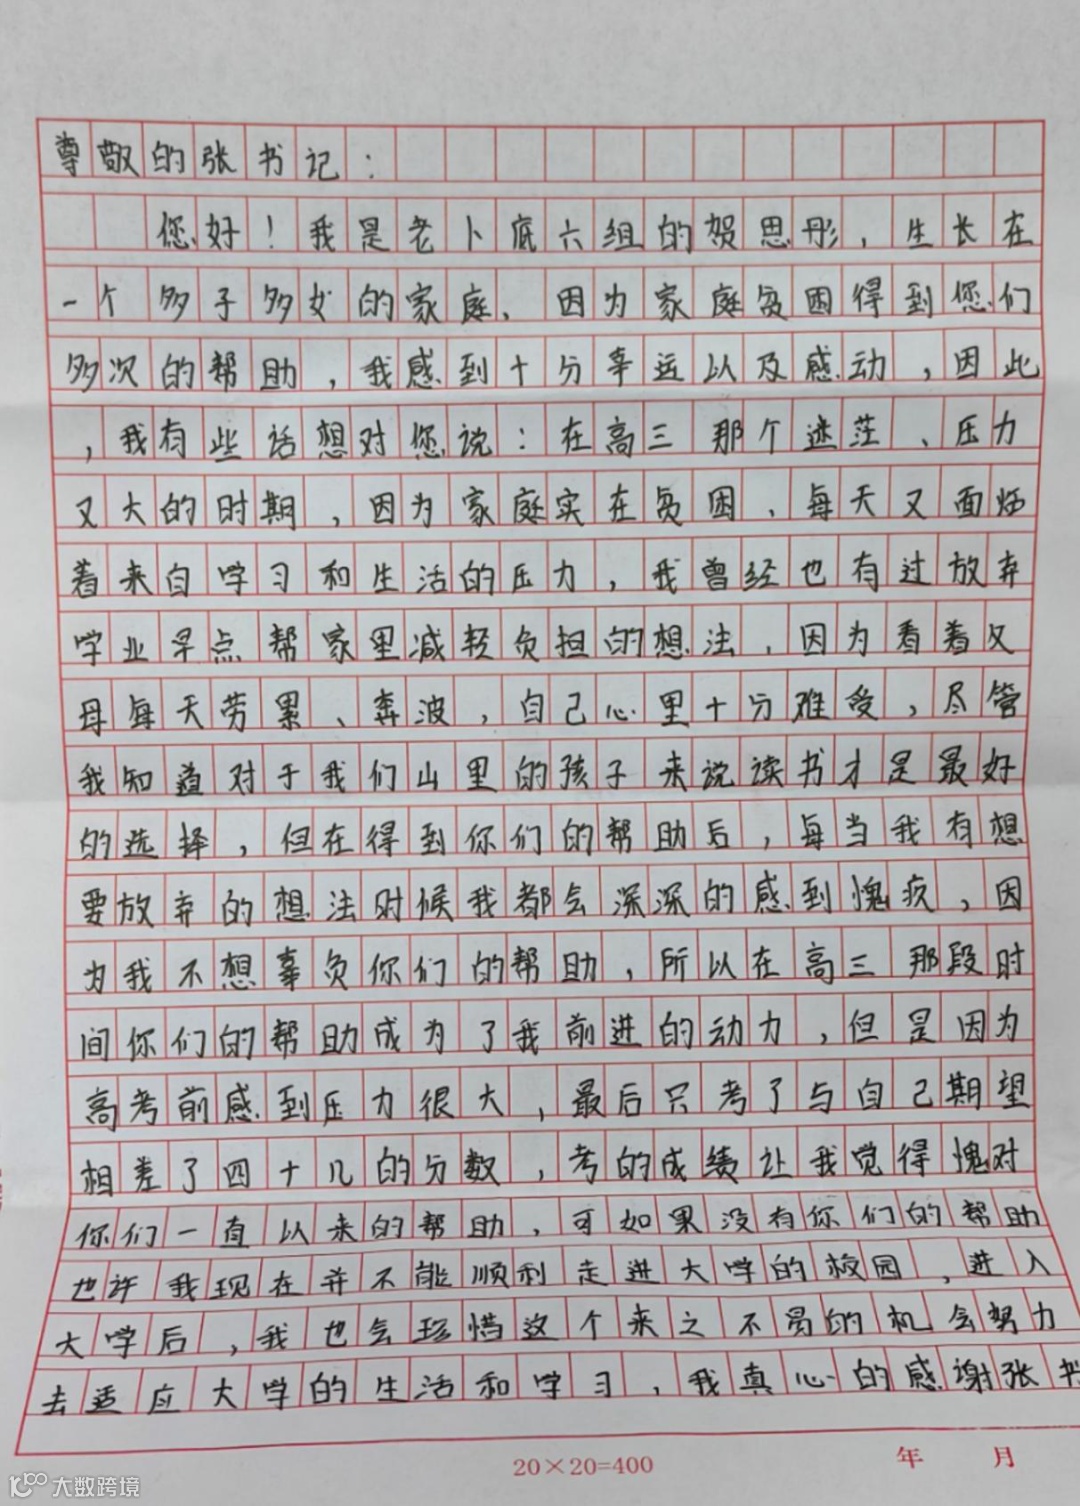 尊敬的张书记：
您好！我是老卜底六组的贺思彤，生长在
一个多子多女的家庭、因为家庭贫困得到您们
多次的帮助，我感到十分幸运以及感动，因此
，我有些话想对您说：在高三那个迷茫、压力
又大的时期，因为家庭实在贫困、每天又面临
着来自学习和生活的压力，我曾经也有过放弃
学业早点帮家里减轻负担的想法，因为看着父
母每天劳累、奔波，自己心里十分难受，尽管
我知道对于我们山里的孩子来说读书才是最好
的选择，但在得到你们的帮助后，每当我有想
要放弃的想法时候我都会深深的感到愧疚，因
为我不想辜负你们的帮助，所以在高三那段时
间你们的帮助成为了我前进的动力，但是因为
高考前感到压力很大，最后只考了与自己期望
相差了四十几的分数，考的成绩让我觉得愧对
你们一直以来的帮助，可如果没有你们的帮助
也许我现在并不能顺利走进大学的校园，进入
大学后，我也会珍惜这个来之不易的机会努力
去适应大学的生活和学习，我真心的感谢张书
20×20=400
年 月
大数跨境